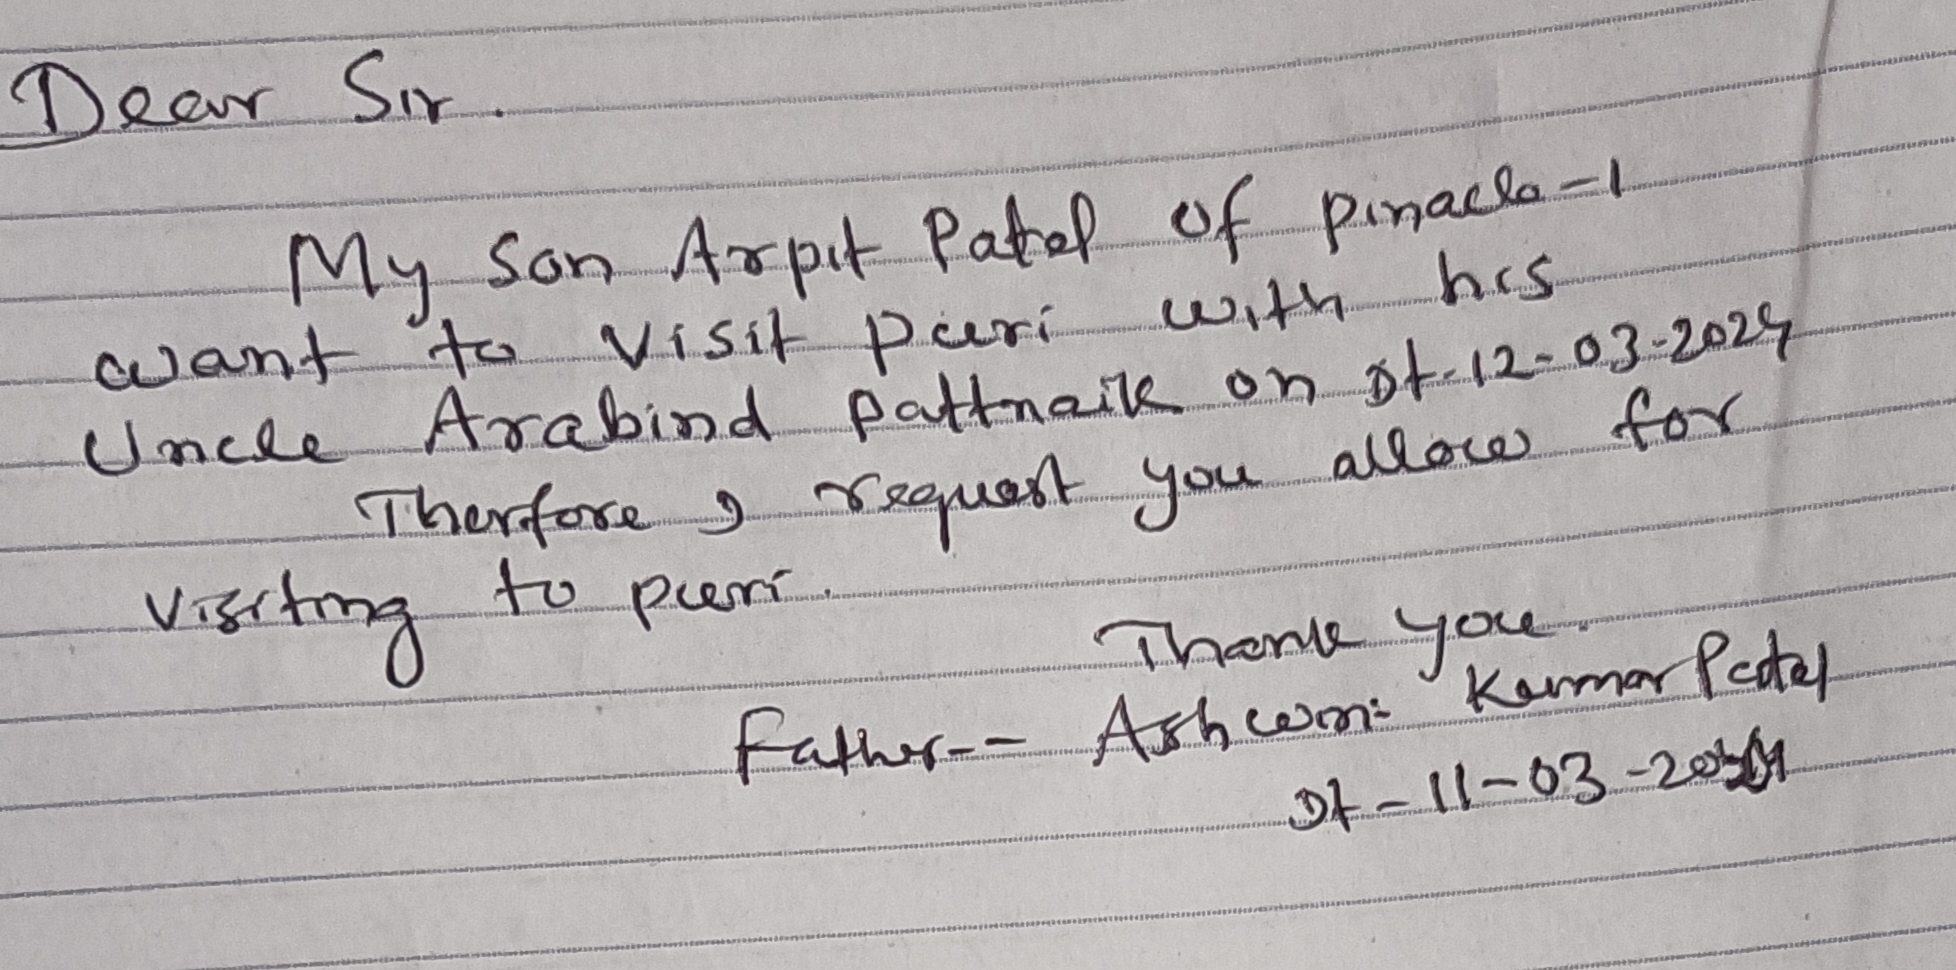 Dear Sir.
My son Arpit Patel of pinacle-1
want to visit puri with his
Uncle Arabind pattnaik on Dt-12-03-2024
Therfore I request you allow for
visiting to puri.
Thank you.
Father-- Ashwini Kumar Patel
Dt-11-03-